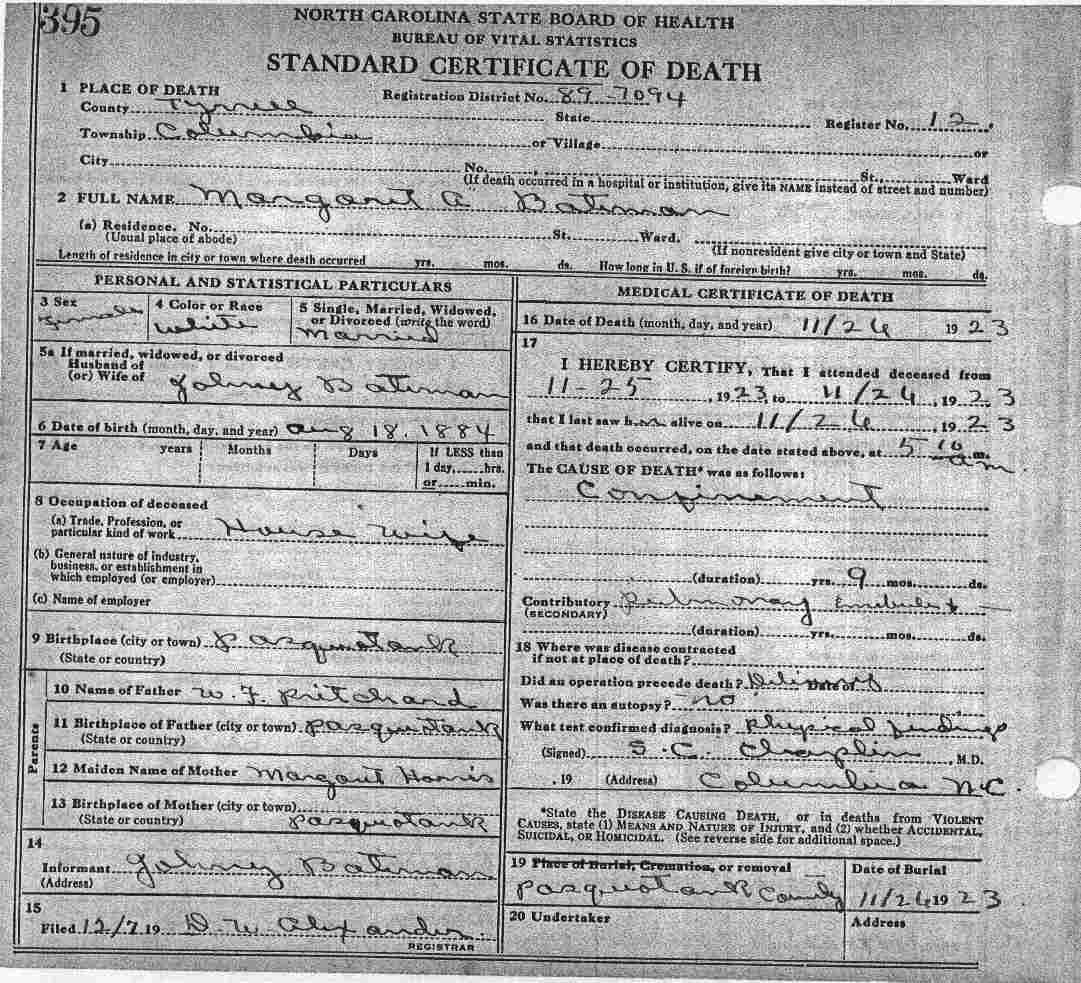 395
NORTH CAROLINA STATE BOARD OF HEALTH
BUREAU OF VITAL STATISTICS
STANDARD CERTIFICATE OF DEATH
1 PLACE OF DEATH
Registration District No. 89-7094
County Tyrrell State Register No. 12
Township Columbia or Village or
City No. St. Ward
(If death occurred in a hospital or institution, give its NAME instead of street and number)
2 FULL NAME Margaret A Bateman
(a) Residence. No. St. Ward.
(Usual place of abode) (If nonresident give city or town and State)
Length of residence in city or town where death occurred yrs. mos. ds. How long in U. S. if of foreign birth? yrs. mos. ds.
PERSONAL AND STATISTICAL PARTICULARS
3 Sex Female
4 Color or Race White
5 Single, Married, Widowed, or Divorced (write the word)
Married
5a If married, widowed, or divorced
Husband of
(or) Wife of Johney Bateman
6 Date of birth (month, day, and year) Aug 18, 1884
7 Age years Months Days If LESS than
1 day, hrs.
or min.
8 Occupation of deceased
(a) Trade, Profession, or
particular kind of work House Wife
(b) General nature of industry,
business, or establishment in
which employed (or employer)
(c) Name of employer
9 Birthplace (city or town) Pasquotank
(State or country)
Parents
10 Name of Father W. F. Pritchard
11 Birthplace of Father (city or town) Pasquotank
(State or country)
12 Maiden Name of Mother Margaret Harris
13 Birthplace of Mother (city or town)
(State or country) Pasquotank
14
Informant Johney Bateman
(Address)
15
Filed 12/7 19 D. W. Alexander
REGISTRAR
MEDICAL CERTIFICATE OF DEATH
16 Date of Death (month, day, and year) 11/26 1923
17
I HEREBY CERTIFY, That I attended deceased from
11-25, 1923, to 11/26, 1923
that I last saw h alive on 11/26, 1923
and that death occurred, on the date stated above, at 5 10 m.
am
The CAUSE OF DEATH* was as follows:
Confinement
(duration) yrs. 9 mos. ds.
Contributory Pulmonary
(SECONDARY)
(duration) yrs. mos. ds.
18 Where was disease contracted
if not at place of death?
Did an operation precede death? Delivery Date of
Was there an autopsy? no
What test confirmed diagnosis? Physical findings
(Signed) S. C. Chaplin, M.D.
, 19 (Address) Columbia N.C.
*State the DISEASE CAUSING DEATH, or in deaths from VIOLENT
CAUSES, state (1) MEANS AND NATURE OF INJURY, and (2) whether ACCIDENTAL,
SUICIDAL, OR HOMICIDAL. (See reverse side for additional space.)
19 Place of Burial, Cremation, or removal
Pasquotank County
Date of Burial
11/26 1923
20 Undertaker
Address